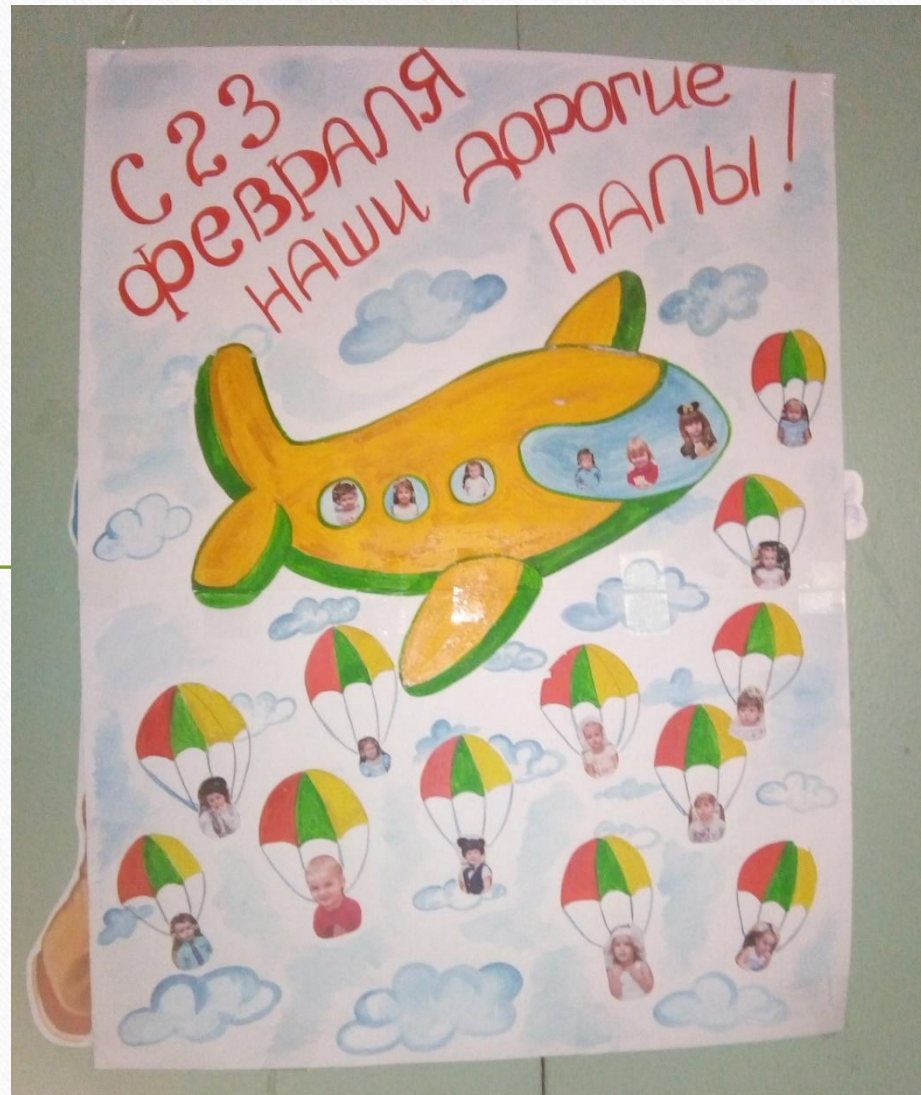 С 23
ФЕВРАЛЯ
НАШИ ДОРОГИЕ
ПАПЫ!